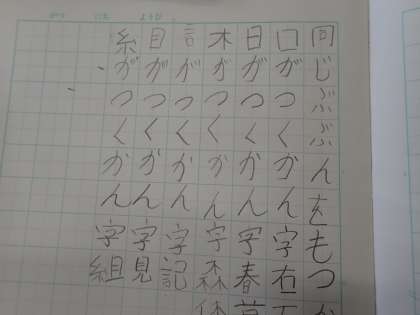 同じぶぶんをもつか
口がつくかん字右
日がつくかん字春
木がつくかん字森
言がつくかん字記
目がつくかん字見
糸がつくかん字組